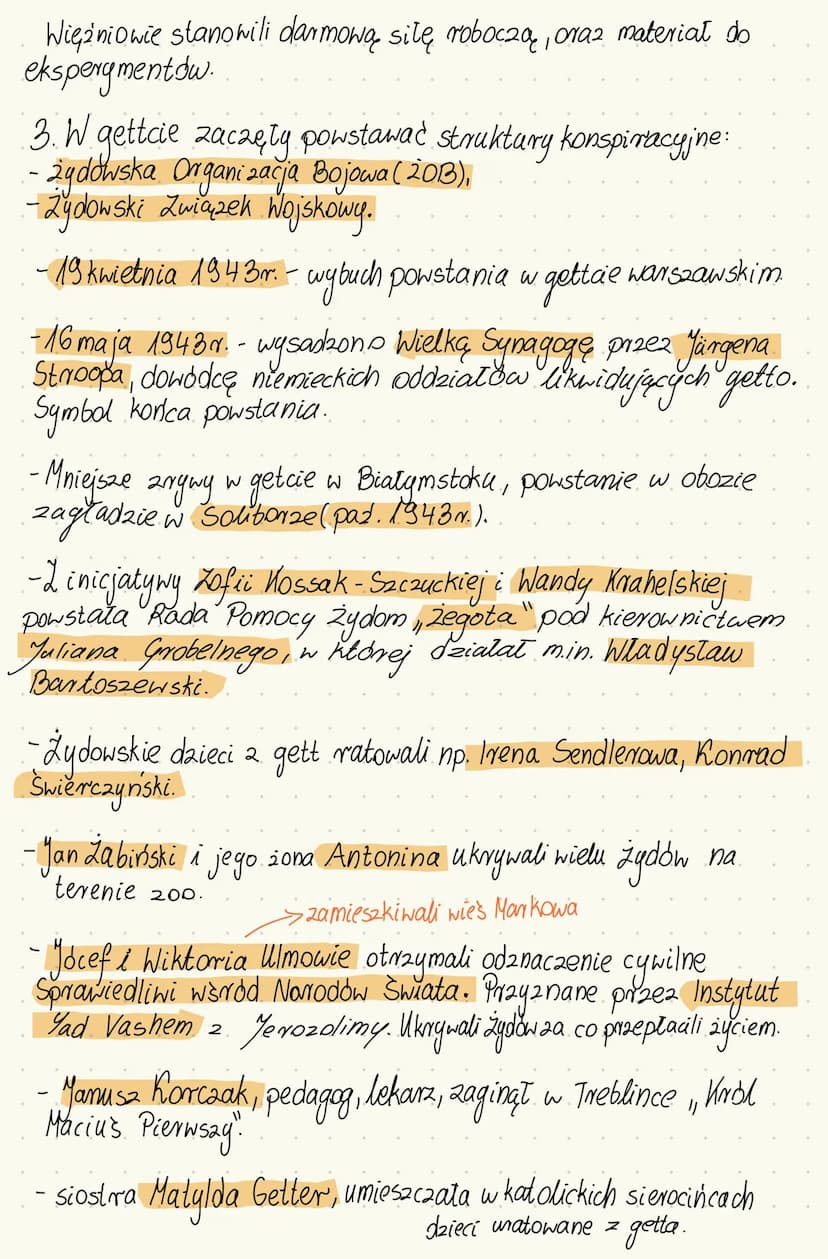 Więźniowie stanowili darmową siłę roboczą, oraz materiał do
eksperymentów.
3. W gettcie zaczęły powstawać struktury konspiracyjne:
- żydowska Organizacja Bojowa (ŻOB),
- Żydowski Związek Wojskowy.
- 19 kwietnia 1943r. - wybuch powstania w gettcie warszawskim
- 16 maja 1943r. - wysadzono Wielką Synagogę przez Jürgena
Stroopa, dowódcę niemieckich oddziałów likwidujących getto.
Symbol końca powstania.
- Mniejsze zrywy w getcie w Białymstoku, powstanie w obozie
zagładzie w Soliborze (paź. 1943r.).
- Z inicjatywy Zofii Kossak-Szczuckiej i Wandy Krahelskiej
powstała Rada Pomocy Żydom „Żegota" pod kierownictwem
Juliana Grobelnego, w której działał m.in. Władysław
Bartoszewski.
- Żydowskie dzieci z gett ratowali np. Irena Sendlerowa, Konrad
Świerczyński.
- Jan Żabiński i jego żona Antonina ukrywali wielu żydów na
terenie zoo.
→ zamieszkiwali wieś Markowa
- Józef i Wiktoria Ulmowie otrzymali odznaczenie cywilne
Sprawiedliwi wśród Narodów Świata. Przyznane przez Instytut
Yad Vashem z Jerozolimy. Ukrywali żydów za co przepłacili życiem.
- Janusz Korczak, pedagog, lekarz, zaginął w Treblince „Król
Maciuś Pierwszy".
- siostra Matylda Getter, umieszczała w katolickich sierocińcach
dzieci uratowane z getta.